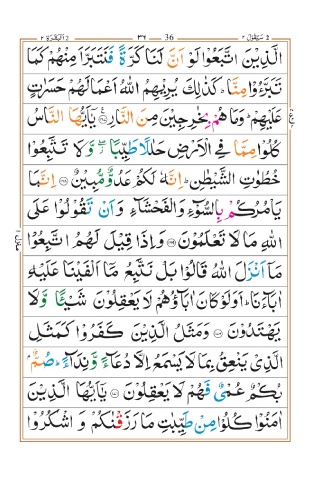 سيقول ٢ ٣٦ 36 البقرة ٢
الَّذِيْنَ اتَّبَعُوْا لَوْ اَنَّ لَنَا كَرَّةً فَنَتَبَرَّاَ مِنْهُمْ كَمَا
تَبَرَّءُوْا مِنَّا ؕ كَذٰلِكَ يُرِيْهِمُ اللّٰهُ اَعْمَالَهُمْ حَسَرٰتٍ
عَلَيْهِمْ ؕ وَمَا هُمْ بِخٰرِجِيْنَ مِنَ النَّارِ ﴿۱۶۷﴾ يٰۤاَيُّهَا النَّاسُ
كُلُوْا مِمَّا فِي الْاَرْضِ حَلٰلًا طَيِّبًا ۖ وَّلَا تَتَّبِعُوْا
خُطُوٰتِ الشَّيْطٰنِ ؕ اِنَّهٗ لَكُمْ عَدُوٌّ مُّبِيْنٌ ﴿۱۶۸﴾ اِنَّمَا
يَاْمُرُكُمْ بِالسُّوْٓءِ وَالْفَحْشَآءِ وَاَنْ تَقُوْلُوْا عَلَى
اللّٰهِ مَا لَا تَعْلَمُوْنَ ﴿۱۶۹﴾ وَاِذَا قِيْلَ لَهُمُ اتَّبِعُوْا
مَاۤ اَنْزَلَ اللّٰهُ قَالُوْا بَلْ نَتَّبِعُ مَاۤ اَلْفَيْنَا عَلَيْهِ
اٰبَآءَنَا ؕ اَوَلَوْ كَانَ اٰبَآؤُهُمْ لَا يَعْقِلُوْنَ شَيْـًٔا وَّلَا
يَهْتَدُوْنَ ﴿۱۷۰﴾ وَمَثَلُ الَّذِيْنَ كَفَرُوْا كَمَثَلِ
الَّذِيْ يَنْعِقُ بِمَا لَا يَسْمَعُ اِلَّا دُعَآءً وَّنِدَآءً ؕ صُمٌّۢ
بُكْمٌ عُمْيٌ فَهُمْ لَا يَعْقِلُوْنَ ﴿۱۷۱﴾ يٰۤاَيُّهَا الَّذِيْنَ
اٰمَنُوْا كُلُوْا مِنْ طَيِّبٰتِ مَا رَزَقْنٰكُمْ وَاشْكُرُوْا